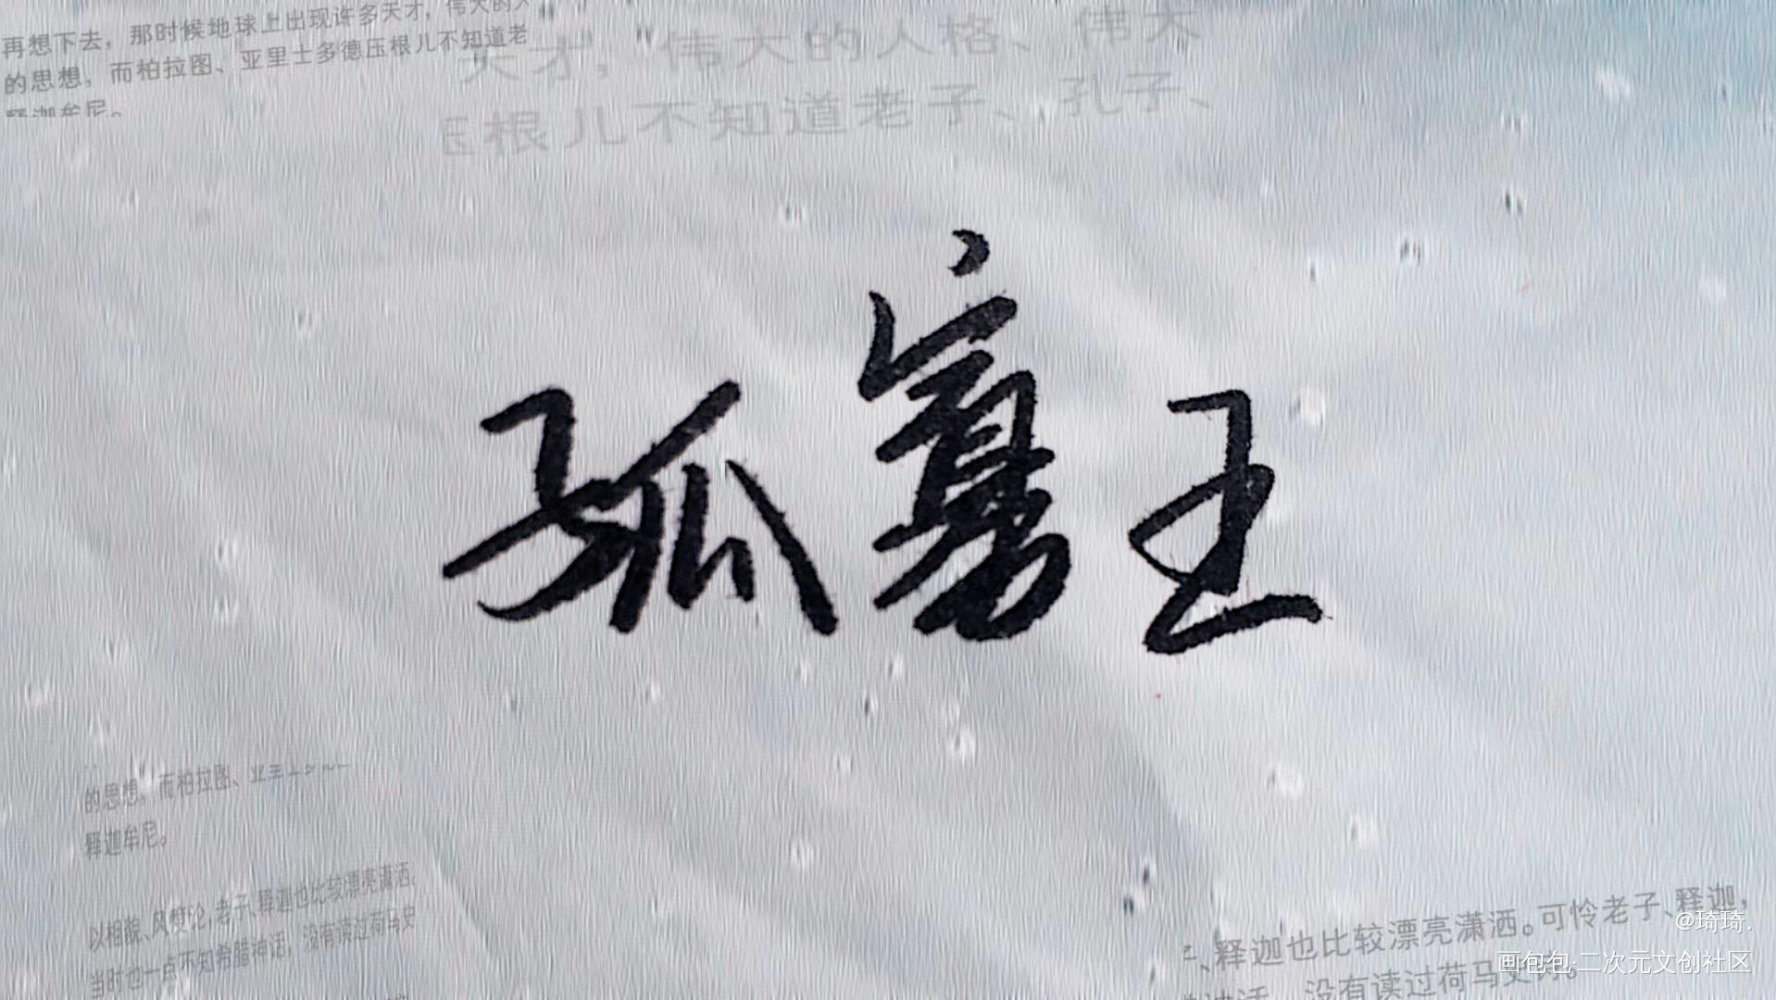 再想下去，那时候地球上出现许多天才，伟大的人
的思想，而柏拉图、亚里士多德压根儿不知道老
释迦牟尼。
天才，伟大的人格、伟大
压根儿不知道老子、孔子、
孤寡王
的思想，而柏拉图、亚里士多
释迦牟尼。
以相貌、风度论，老子、释迦也比较漂亮潇洒。
当时也一点不知希腊神话，没有读过荷马史
、释迦也比较漂亮潇洒。可怜老子、释迦，
神话，没有读过荷马史诗。
@琦琦.
画包包·二次元文创社区